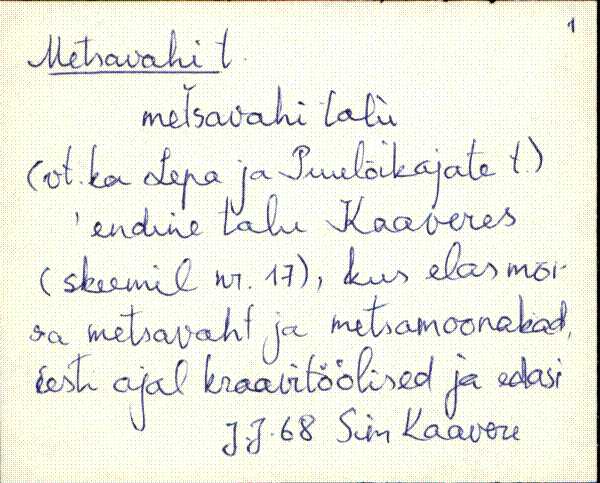 1
Metsavahi t.
metšavahi talù
(vt. ka Lepa ja Puulõikajate t.)
'endine talu Kaaveres
(skeemil nr. 17), kus elas mõi-
sa metsavaht ja metsamoonakad,
Eesti ajal kraavitöölised ja edasi
J.J. 68 Sim Kaavere